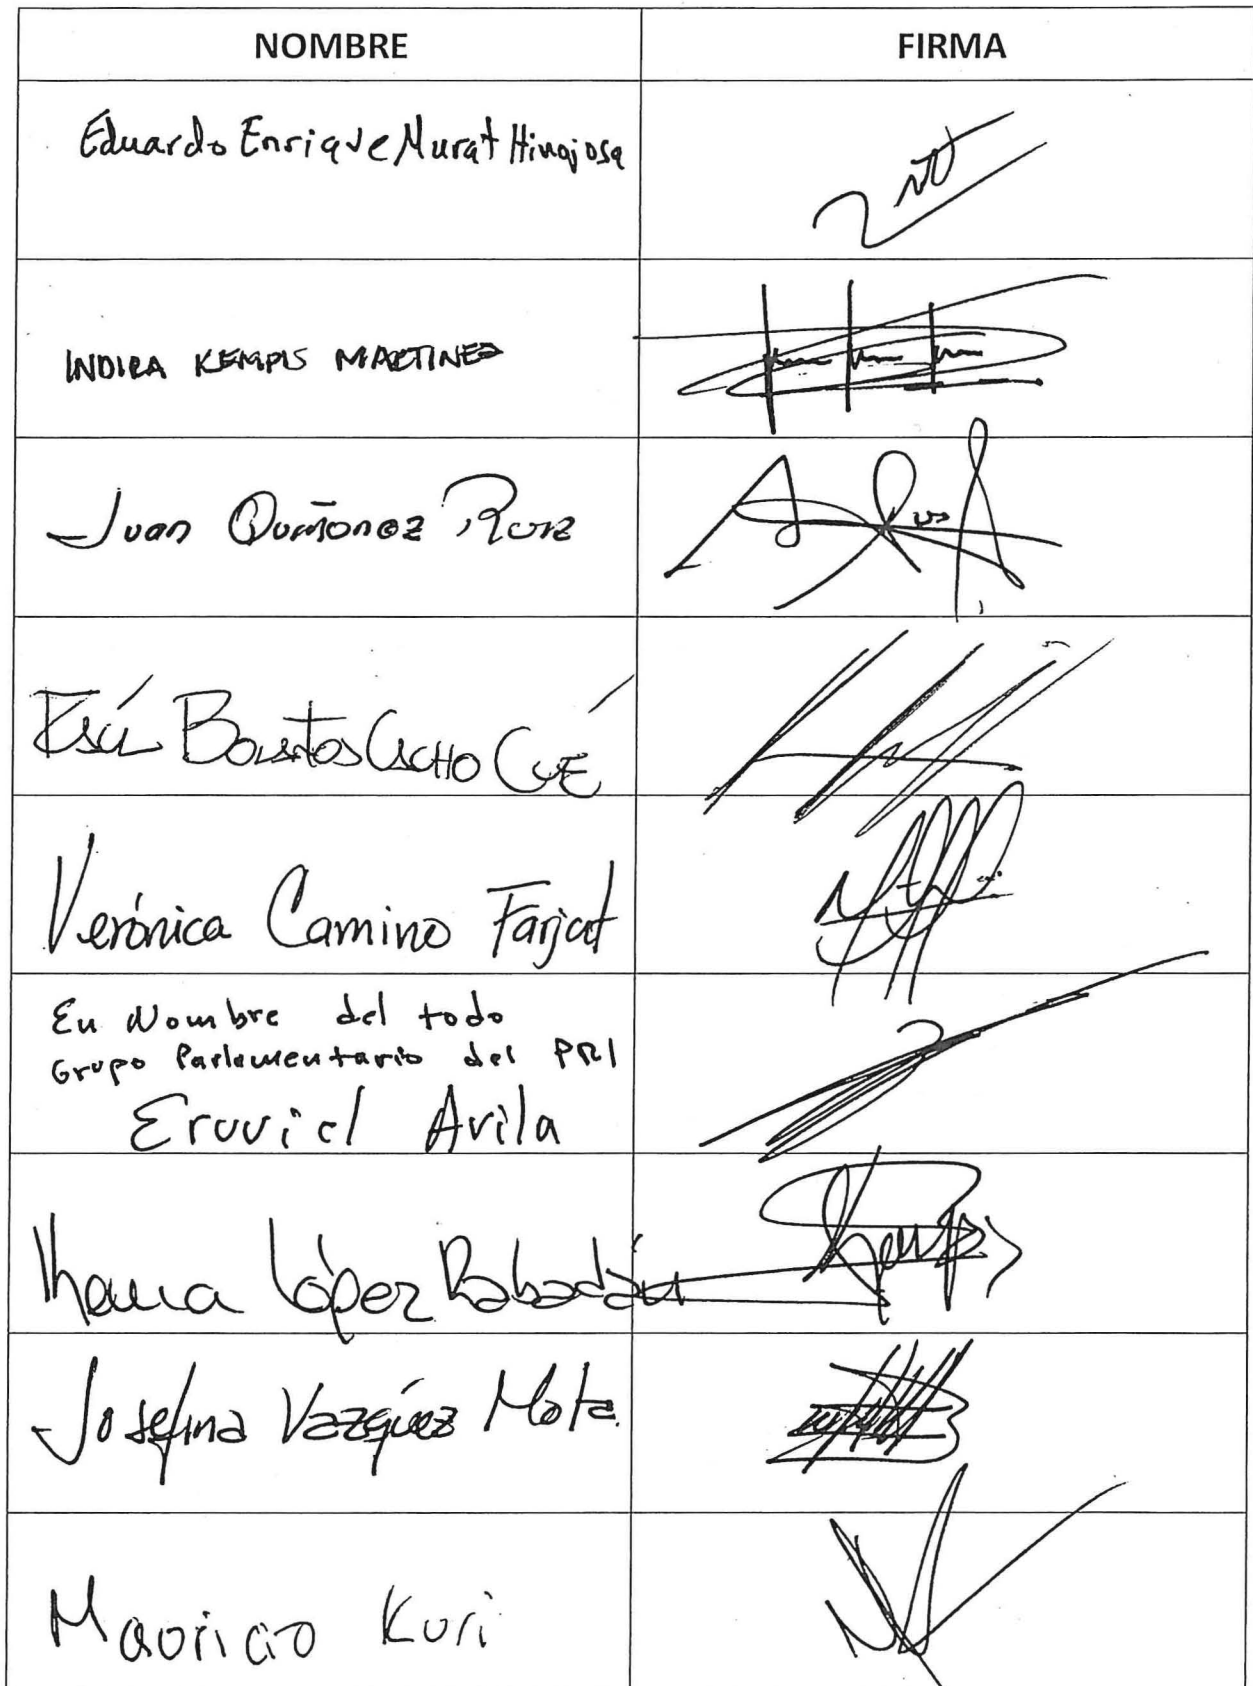 NOMBRE FIRMA
Eduardo Enrique Murat Hinojosa
INDIRA KEMPIS MARTINEZ
Juan Quiñonez Ruiz
Bolaños Cacho Cué
Verónica Camino Farjat
En Nombre del todo
Grupo Parlamentario del PRI
Eruviel Avila
Kenia López Rabadán
Josefina Vazquez Mota
Mauricio Kuri